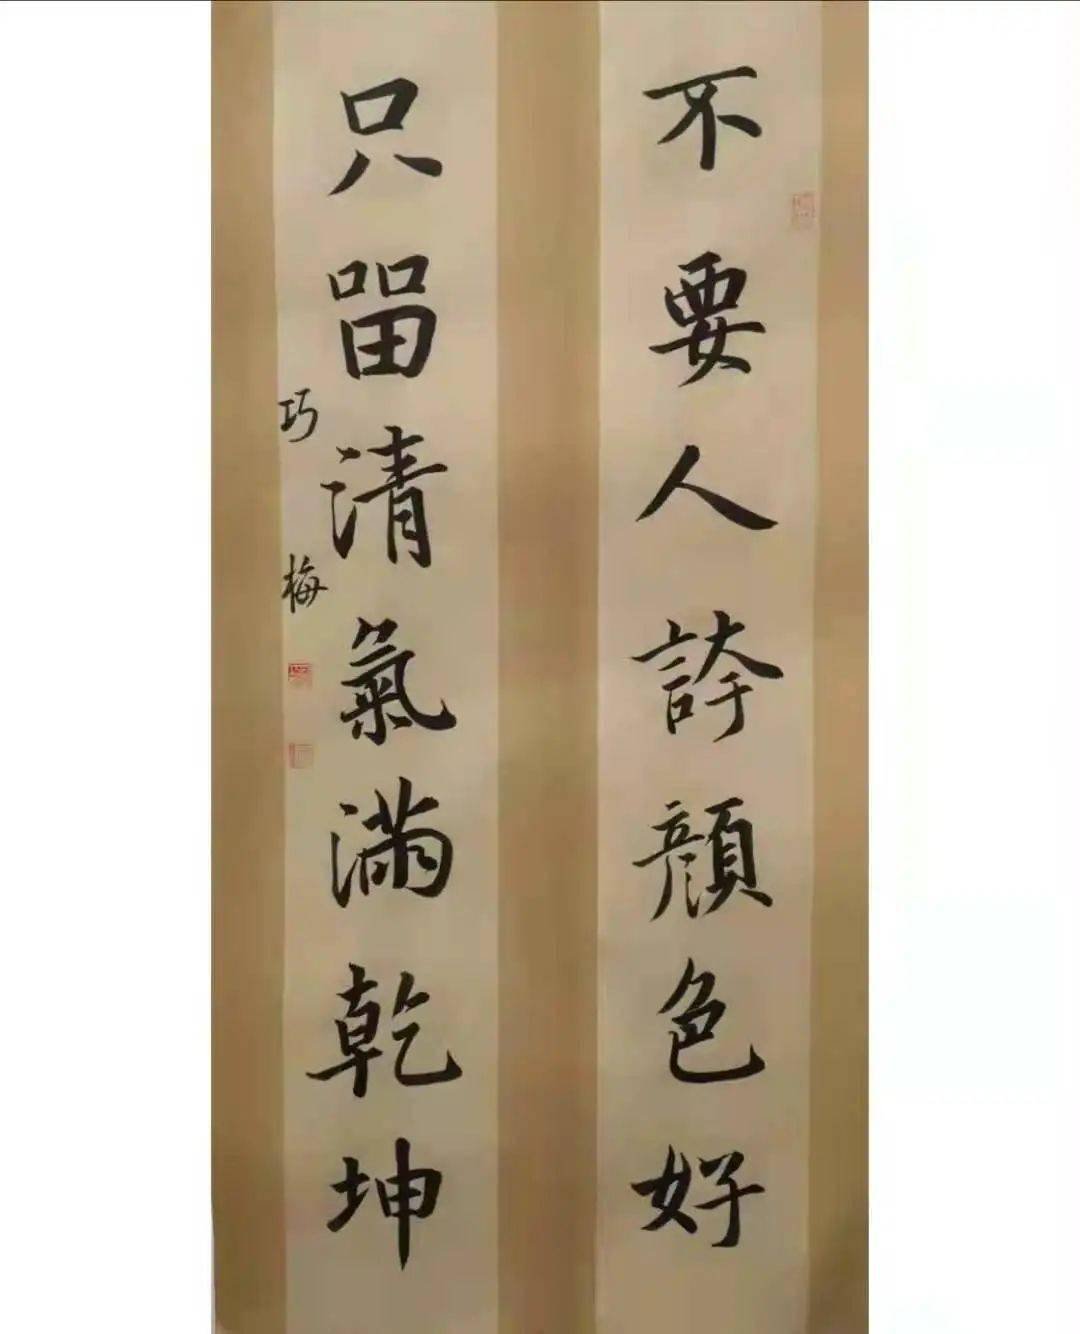 不要人誇顔色好
只畱清氣滿乾坤
巧梅